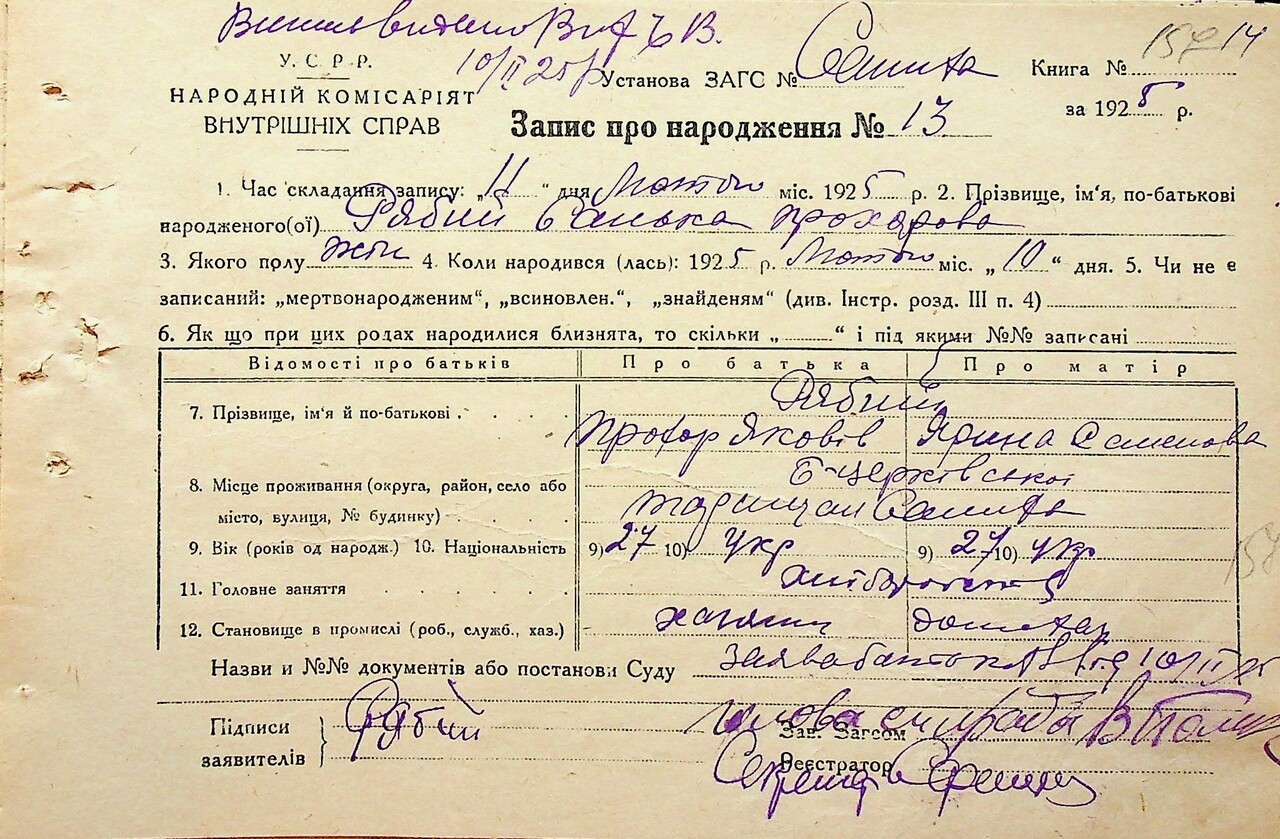 157 14
У. С. Р. Р.
10/II 25 р Установа ЗАГС № Саниха Книга №
НАРОДНІЙ КОМІСАРІЯТ
ВНУТРІШНІХ СПРАВ
за 1925 р.
Запис про народження № 13
1. Час складання запису: „11“ дня Лютого міс. 1925 р. 2. Прізвище, ім‘я, по-батькові
народженого(ої) Рябий Санька Прохорова
3. Якого полу жін 4. Коли народився (лась): 1925 р. Лютого міс. „10“ дня. 5. Чи не є
записаний: „мертвонародженим“, „всиновлен.“, „знайденям“ (див. Інстр. розд. III п. 4)
6. Як що при цих родах народилися близнята, то скільки „ “ і під якими №№ записані
Відомості про батьків Про батька Про матір
7. Прізвище, ім‘я й по-батькові Рябий
Прохор Яковів Ярина Семенова
8. Місце проживання (округа, район, село або Б-церківської
місто, вулиця, № будинку) Саниха
9. Вік (років од народж.) 10. Національність 9) 27 10) укр 9) 27 10) укр
11. Головне заняття хліборобство
12. Становище в промислі (роб., служб., хаз.) хазяин
Назви и №№ документів або постанови Суду Заява батька від 10/II 25
Підписи Рябий Голова сільради В
Зав. Загсом
заявителів Реєстратор Секретар
157